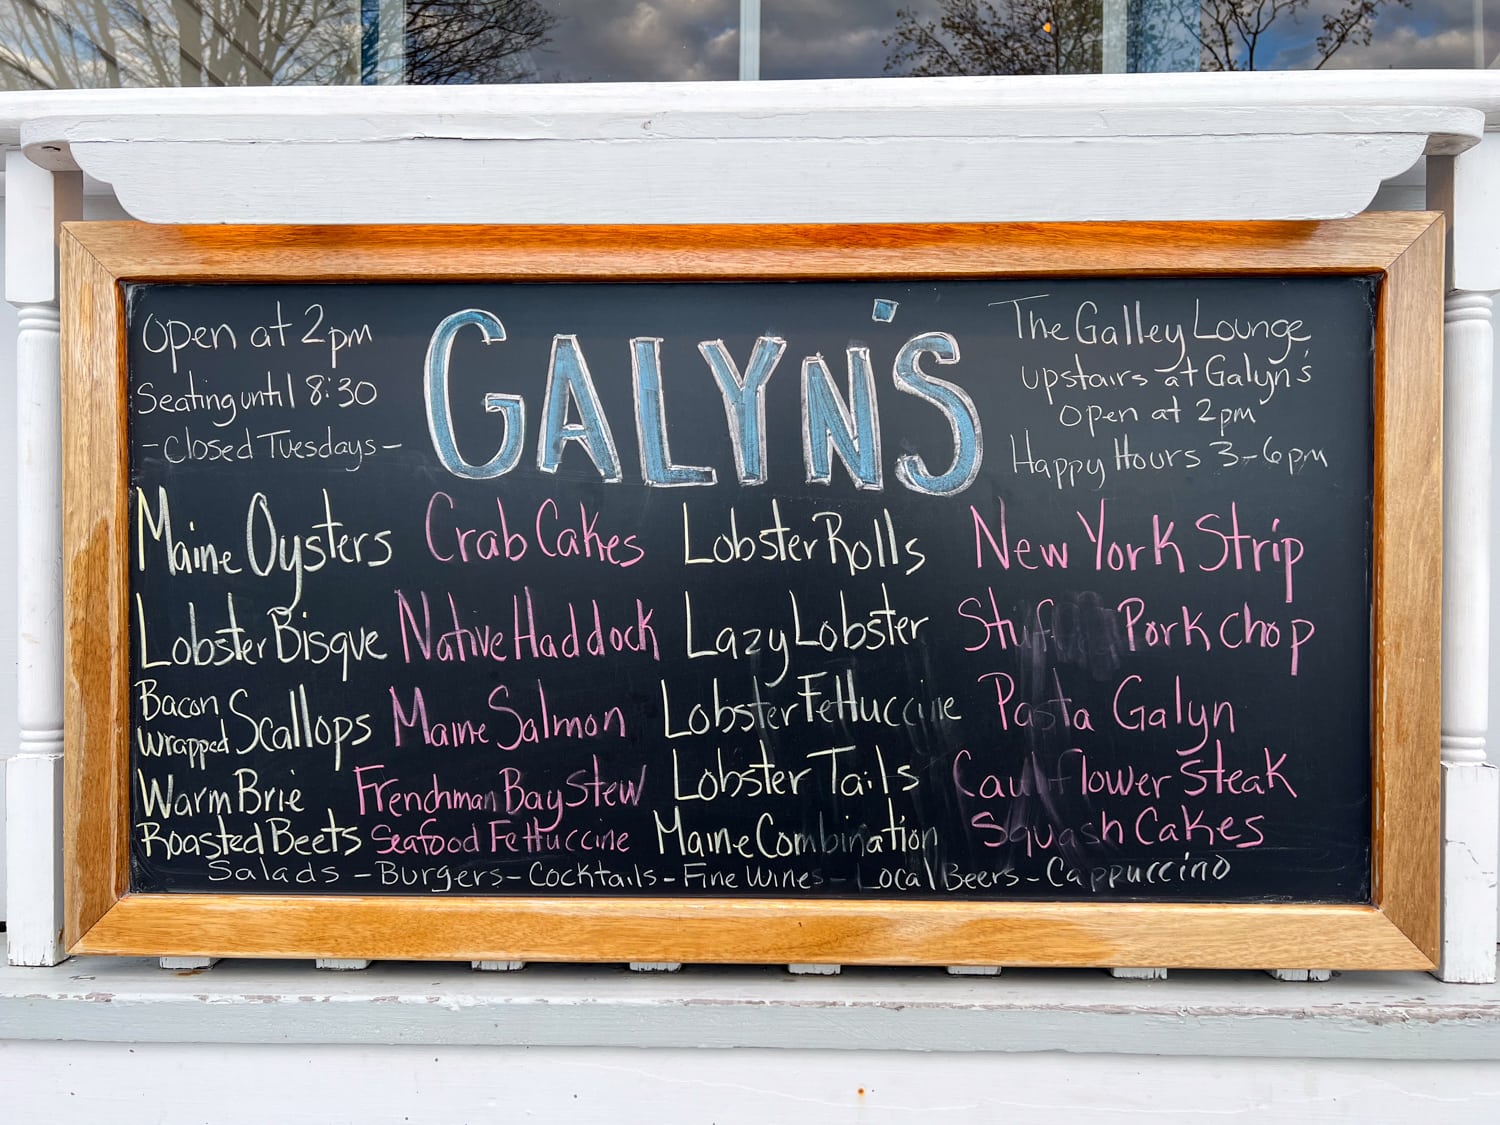 Open at 2pm
Seating until 8:30
- Closed Tuesdays -
GALYN'S
The Galley Lounge
upstairs at Galyn's
open at 2pm
Happy Hours 3-6pm
Maine Oysters
Lobster Bisque
Bacon
Wrapped Scallops
Warm Brie
Roasted Beets
Crab Cakes
Native Haddock
Maine Salmon
Frenchman Bay Stew
Seafood Fettuccine
Lobster Rolls
Lazy Lobster
Lobster Fettuccine
Lobster Tails
Maine Combination
New York Strip
Pork Chop
Pasta Galyn
Cauliflower Steak
Squash Cakes
Salads - Burgers - Cocktails - Fine Wines - Local Beers - Cappuccino